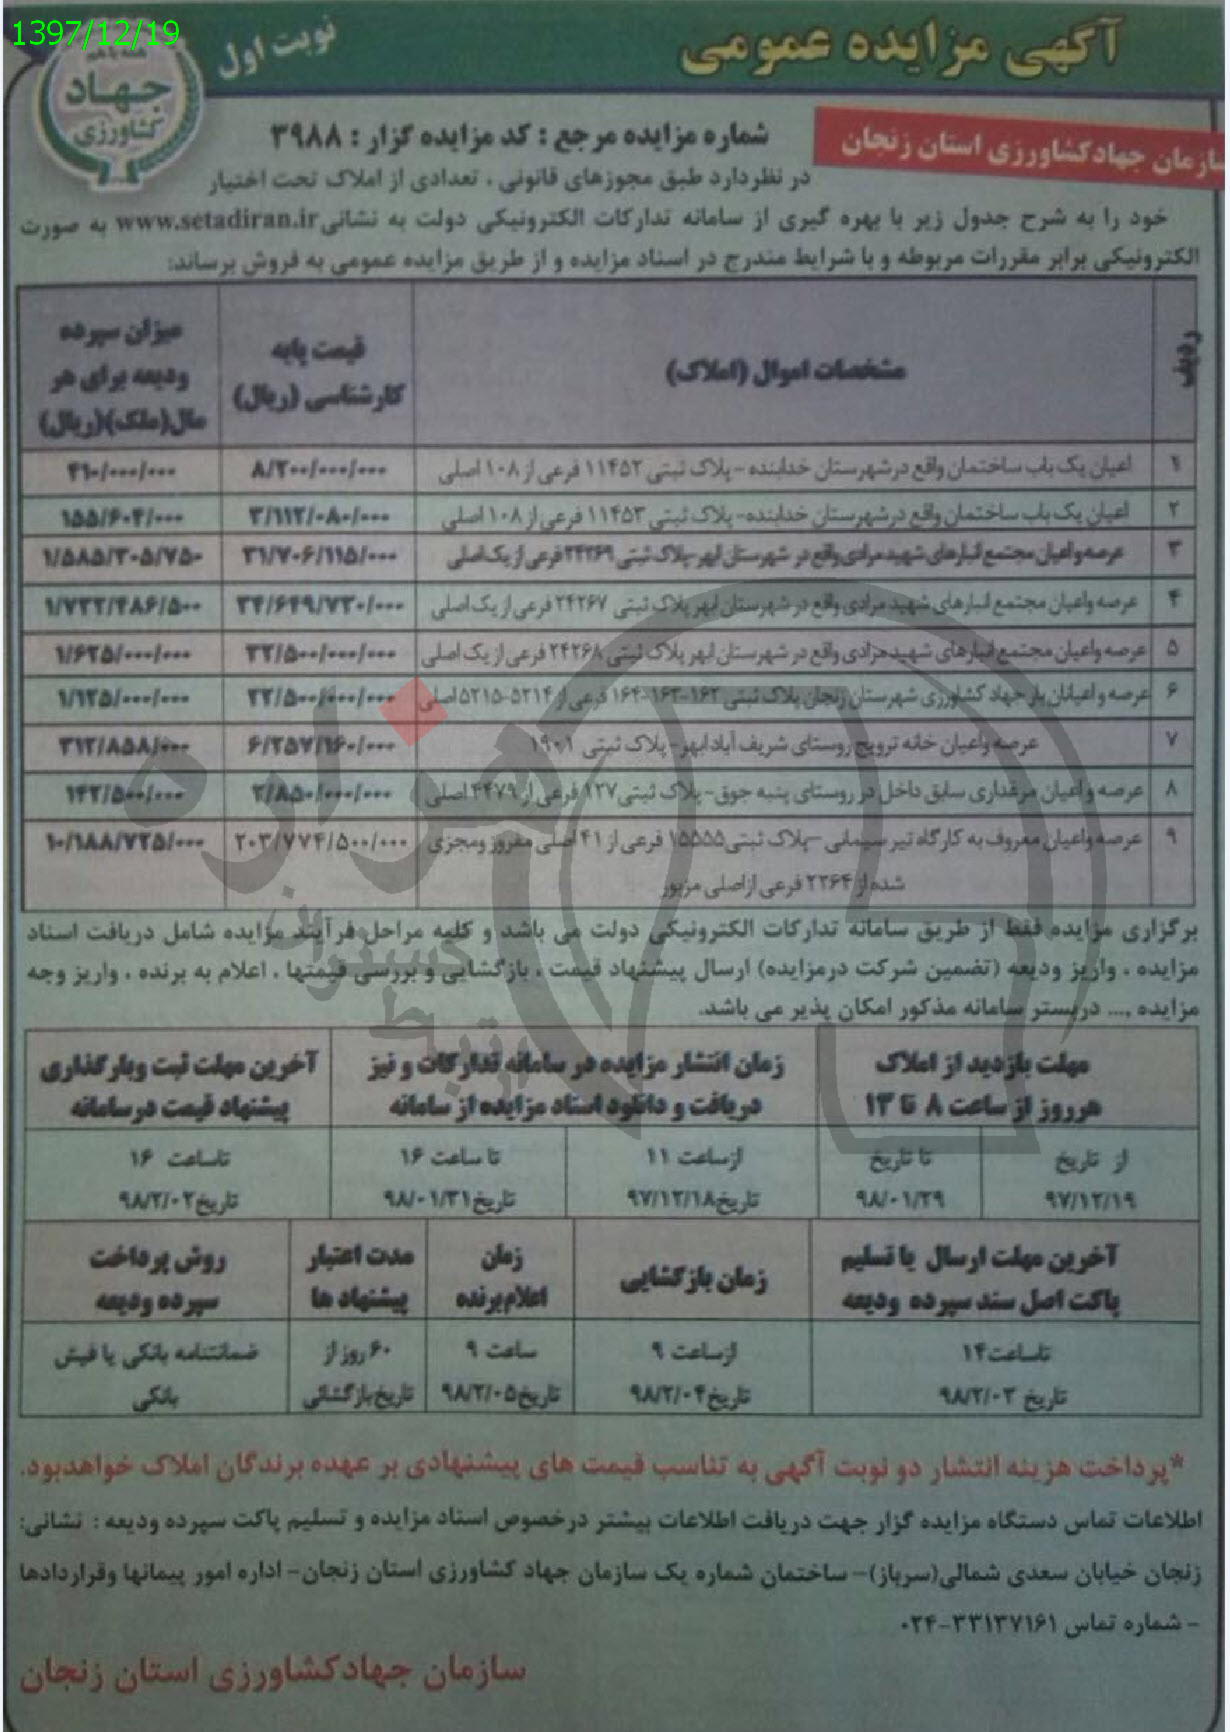 1397/12/19
آگهی مزایده عمومی
نوبت اول
جهاد
کشاورزی
سازمان جهادکشاورزی استان زنجان
شماره مزایده مرجع : کد مزایده گزار : ۳۹۸۸
در نظردارد طبق مجوزهای قانونی ، تعدادی از املاک تحت اختیار
خود را به شرح جدول زیر با بهره گیری از سامانه تدارکات الکترونیکی دولت به نشانی www.setadiran.ir به صورت
الکترونیکی برابر مقررات مربوطه و با شرایط مندرج در اسناد مزایده و از طریق مزایده عمومی به فروش برساند:
ردیف مشخصات اموال (املاک) قیمت پایه کارشناسی (ریال) میزان سپرده ودیعه برای هر مال(ملک)(ریال)
۱ اعیان یک باب ساختمان واقع درشهرستان خدابنده - پلاک ثبتی ۱۱۴۵۲ فرعی از ۱۰۸ اصلی ۸/۲۰۰/۰۰۰/۰۰۰ ۴۱۰/۰۰۰/۰۰۰
۲ اعیان یک باب ساختمان واقع درشهرستان خدابنده- پلاک ثبتی ۱۱۴۵۳ فرعی از ۱۰۸ اصلی ۳/۱۱۲/۰۸۰/۰۰۰ ۱۵۵/۶۰۴/۰۰۰
۳ عرصه واعیان مجتمع انبارهای شهید مرادی واقع در شهرستان ابهر-پلاک ثبتی ۲۴۲۶۹ فرعی از یک اصلی ۳۱/۷۰۶/۱۱۵/۰۰۰ ۱/۵۸۵/۳۰۵/۷۵۰
۴ عرصه واعیان مجتمع انبارهای شهید مرادی واقع در شهرستان ابهر پلاک ثبتی ۲۴۲۶۷ فرعی از یک اصلی ۳۴/۶۴۹/۷۳۰/۰۰۰ ۱/۷۳۲/۴۸۶/۵۰۰
۵ عرصه واعیان مجتمع انبارهای شهید مرادی واقع در شهرستان ابهر پلاک ثبتی ۲۴۲۶۸ فرعی از یک اصلی ۳۲/۵۰۰/۰۰۰/۰۰۰ ۱/۶۲۵/۰۰۰/۰۰۰
۶ عرصه و اعیانان بار جهاد کشاورزی شهرستان زنجان پلاک ثبتی ۱۶۲-۱۶۳-۱۶۴ فرعی از ۵۲۱۴-۵۲۱۵ اصلی ۲۲/۵۰۰/۰۰۰/۰۰۰ ۱/۱۲۵/۰۰۰/۰۰۰
۷ عرصه واعیان خانه ترویج روستای شریف آباد ابهر- پلاک ثبتی ۱۹۰۱ ۶/۲۵۷/۱۶۰/۰۰۰ ۳۱۲/۸۵۸/۰۰۰
۸ عرصه و اعیان مرغداری سابق داخل در روستای پنبه جوق- پلاک ثبتی ۱۲۷ فرعی از ۴۴۷۹ اصلی ۲/۸۵۰/۰۰۰/۰۰۰ ۱۴۲/۵۰۰/۰۰۰
۹ عرصه واعیان معروف به کارگاه تیر سیمانی –پلاک ثبتی ۱۵۵۵۵ فرعی از ۴۱ اصلی مفروز ومجزی ۲۰۳/۷۷۴/۵۰۰/۰۰۰ ۱۰/۱۸۸/۷۲۵/۰۰۰
شده از ۲۲۶۴ فرعی ازاصلی مزبور
برگزاری مزایده فقط از طریق سامانه تدارکات الکترونیکی دولت می باشد و کلیه مراحل فرآیند مزایده شامل دریافت اسناد
مزایده ، واریز ودیعه (تضمین شرکت درمزایده) ارسال پیشنهاد قیمت ، بازگشایی و بررسی قیمتها ، اعلام به برنده ، واریز وجه
مزایده ،... دربستر سامانه مذکور امکان پذیر می باشد.
مهلت بازدید از املاک زمان انتشار مزایده در سامانه تدارکات و نیز آخرین مهلت ثبت وبارگذاری
هرروز از ساعت ۸ تا ۱۳ دریافت و دانلود اسناد مزایده از سامانه پیشنهاد قیمت درسامانه
از تاریخ تا تاریخ ازساعت ۱۱ تا ساعت ۱۶ تاساعت ۱۶
۹۷/۱۲/۱۹ ۹۸/۰۱/۲۹ تاریخ۹۷/۱۲/۱۸ تاریخ۹۸/۰۱/۳۱ تاریخ۹۸/۲/۰۲
آخرین مهلت ارسال یا تسلیم زمان بازگشایی زمان مدت اعتبار روش پرداخت
پاکت اصل سند سپرده ودیعه اعلام برنده پیشنهاد ها سپرده ودیعه
تاساعت۱۴ ازساعت ۹ ساعت ۹ ۶۰ روز از ضمانتنامه بانکی یا فیش
تاریخ ۹۸/۲/۰۳ تاریخ۹۸/۲/۰۴ تاریخ۹۸/۲/۰۵ تاریخ بازگشائی بانکی
*پرداخت هزینه انتشار دو نوبت آگهی به تناسب قیمت های پیشنهادی بر عهده برندگان املاک خواهدبود.
اطلاعات تماس دستگاه مزایده گزار جهت دریافت اطلاعات بیشتر درخصوص اسناد مزایده و تسلیم پاکت سپرده ودیعه : نشانی:
زنجان خیابان سعدی شمالی(سرباز)– ساختمان شماره یک سازمان جهاد کشاورزی استان زنجان– اداره امور پیمانها وقراردادها
– شماره تماس ۳۳۱۳۷۱۶۱-۰۲۴
سازمان جهادکشاورزی استان زنجان
هزاره
ارتباط
گستران